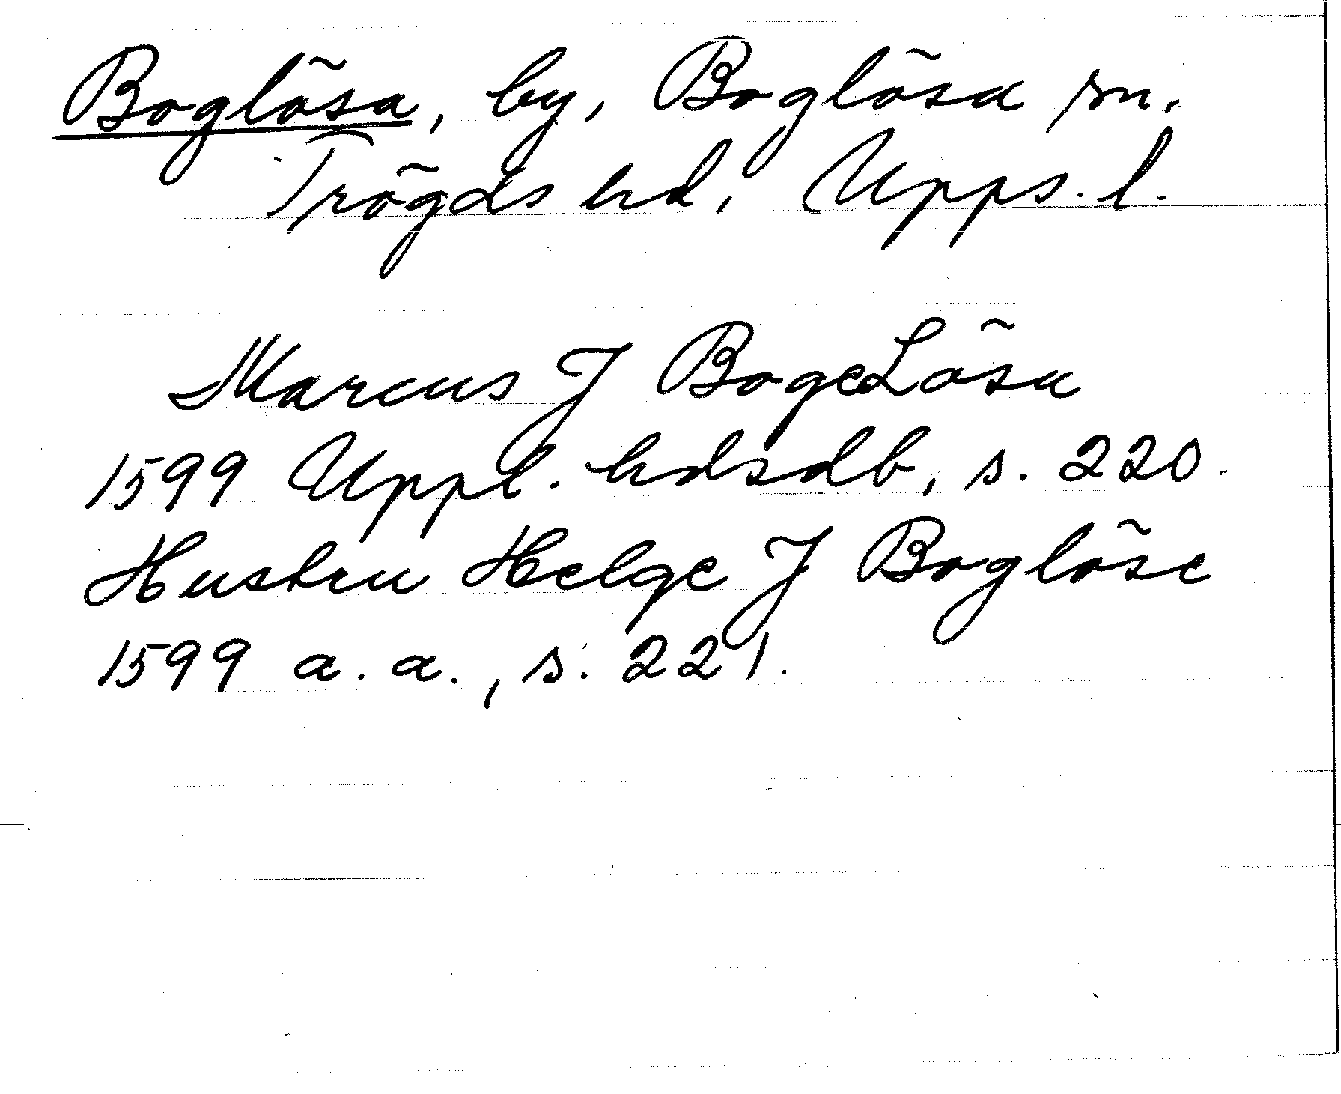 Boglösa, by, Boglösa sn.
Trögds hd, Upps. l.
Marcus J BogeLösa
1599 Uppl. hdsdb, s. 220.
Hustru Helge J Boglöse
1599 a. a., s. 221.